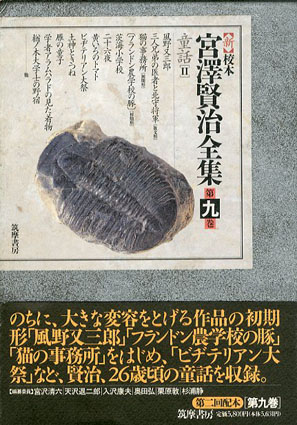 【新】校本
宮澤賢治全集 第九巻
童話[Ⅱ]
風野又三郎
三人兄弟の医者と北守将軍
猫の事務所〔初期形〕
〔フランドン農学校の豚〕〔初期形〕
茨海小学校
二十六夜
黄いろのトマト
ビヂテリアン大祭
土神ときつね
雁の童子
学者アラムハラドの見た着物
楢ノ木大学士の野宿
他
筑摩書房
のちに、大きな変容をとげる作品の初期
形「風野又三郎」「フランドン農学校の豚」
「猫の事務所」をはじめ、「ビヂテリアン大
祭」など、賢治、26歳頃の童話を収録。
宮沢清六|天沢退二郎|入沢康夫|奥田弘|栗原敦|杉浦静
第二回配本[第九巻]
筑摩書房 定価5,800円(本体5,631円)